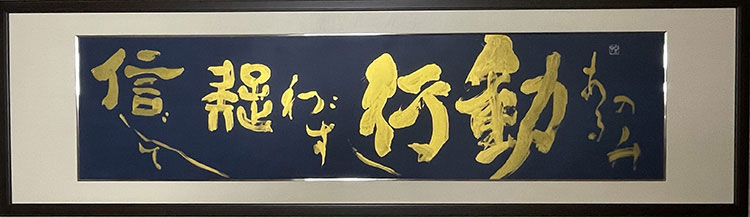 信じて疑わず行動あるのみ